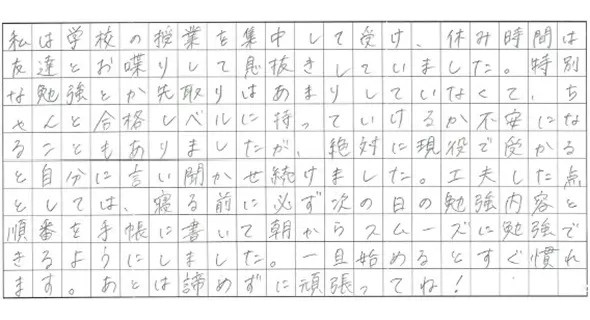 私は学校の授業を集中して受け、休み時間は
友達とお喋りして息抜きしていました。特別
な勉強とか先取りはあまりしていなくて、ち
ゃんと合格レベルに持っていけるか不安にな
ることもありましたが、絶対に現役で受かる
と自分に言い聞かせ続けました。工夫した点
としては、寝る前に必ず次の日の勉強内容と
順番を手帳に書いて朝からスムーズに勉強で
きるようにしました。一旦始めるとすぐ慣れ
ます。あとは諦めずに頑張ってね！